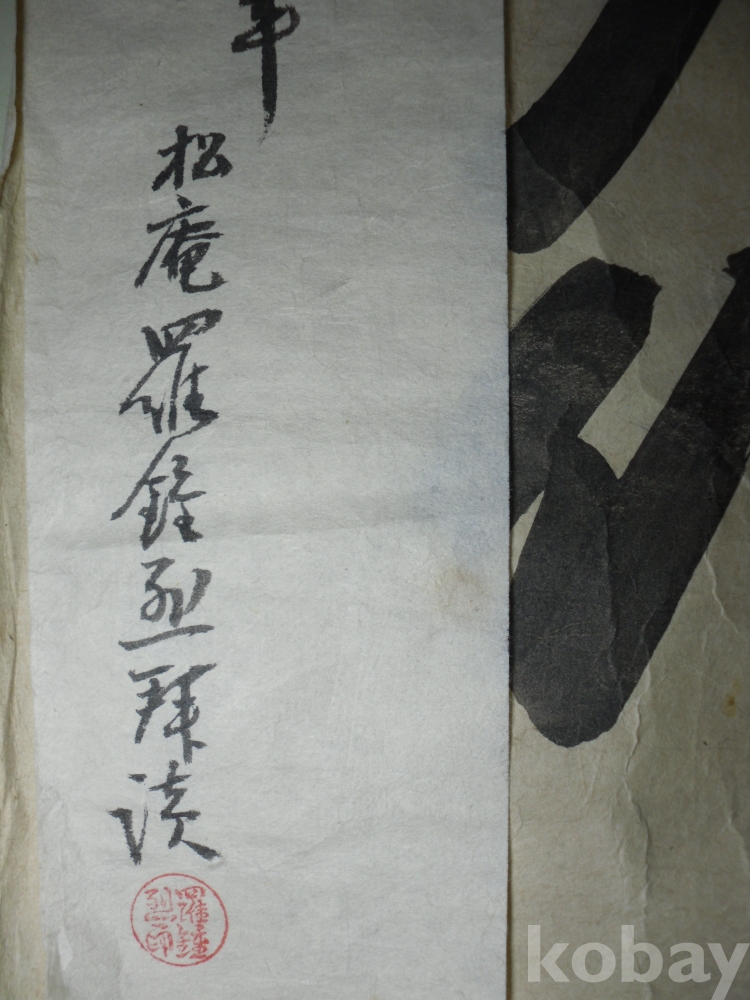 年
松庵羅鍾烈拜讀
羅鍾烈印
kobay